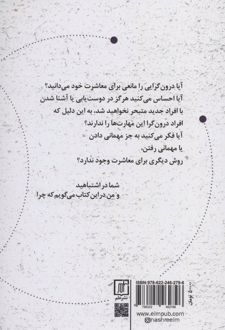 آیا درون‌گرایی را مانعی برای معاشرت خود می‌دانید؟
آیا احساس می‌کنید هرگز در دوست‌یابی یا آشنا شدن
با افراد جدید متبحر نخواهید شد، به این دلیل که
افراد درون‌گرا این مهارت‌ها را ندارند؟
آیا فکر می‌کنید به جز مهمانی دادن
یا مهمانی رفتن،
روش دیگری برای معاشرت وجود ندارد؟
شما در اشتباهید
و من در این کتاب می‌گویم که چرا
نشر علم
www.elmpub.com
@nashreelm
ISBN 978-622-246-279-6
تومان